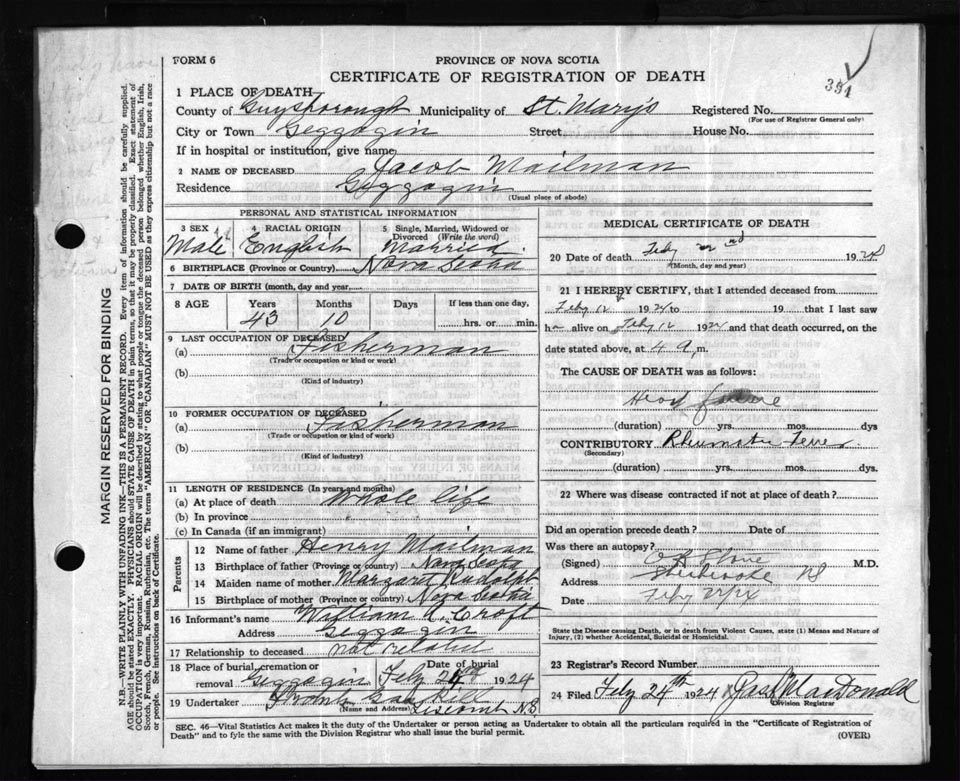 FORM 6
PROVINCE OF NOVA SCOTIA
CERTIFICATE OF REGISTRATION OF DEATH
351
1 PLACE OF DEATH
County of Guysborough Municipality of St. Marys Registered No.
(For use of Registrar General only)
City or Town Geggogin Street House No.
If in hospital or institution, give name
2 NAME OF DECEASED Jacob Mailman
Residence Geggogin
(Usual place of abode)
PERSONAL AND STATISTICAL INFORMATION
3 SEX Male
4 RACIAL ORIGIN English
5 Single, Married, Widowed or Divorced (Write the word) Married
6 BIRTHPLACE (Province or Country) Nova Scotia
7 DATE OF BIRTH (month, day and year)
8 AGE Years 43 Months 10 Days If less than one day, hrs. or min.
9 LAST OCCUPATION OF DECEASED
(a) Fisherman
(Trade or occupation or kind or work)
(b)
(Kind of industry)
10 FORMER OCCUPATION OF DECEASED
(a) Fisherman
(Trade or occupation or kind of work)
(b)
(Kind of industry)
11 LENGTH OF RESIDENCE (In years and months)
(a) At place of death Whole life
(b) In province
(c) In Canada (if an immigrant)
Parents
12 Name of father Henry Mailman
13 Birthplace of father (Province or country) Nova Scotia
14 Maiden name of mother Margaret Rudolph
15 Birthplace of mother (Province or country) Nova Scotia
16 Informant's name William A. Croft
Address Geggogin
17 Relationship to deceased not related
18 Place of burial, cremation or removal Geggogin Date of burial Feby 24th 1924
19 Undertaker
(Name and Address) Liscomb N.S.
MEDICAL CERTIFICATE OF DEATH
20 Date of death Feby 22nd 1924
(Month, day and year)
21 I HEREBY CERTIFY, that I attended deceased from
Feby 12 1924 to 19 that I last saw
h alive on Feby 12 1924 and that death occurred, on the
date stated above, at 4 a. m.
The CAUSE OF DEATH was as follows:
Heart failure
(duration) yrs. mos. dys
CONTRIBUTORY Rheumatic Fever
(Secondary)
(duration) yrs. mos. dys.
22 Where was disease contracted if not at place of death?
Did an operation precede death? Date of
Was there an autopsy?
(Signed) M.D.
Address Sherbrooke NS
Date Feby
State the Disease causing Death, or in death from Violent Causes, state (1) Means and Nature of
Injury, (2) whether Accidental, Suicidal or Homicidal.
23 Registrar's Record Number
24 Filed Feby 24th 1924 Jas. MacDonald
Division Registrar
SEC. 46—Vital Statistics Act makes it the duty of the Undertaker or person acting as Undertaker to obtain all the particulars required in the "Certificate of Registration of
Death" and to fyle the same with the Division Registrar who shall issue the burial permit.
(OVER)
MARGIN RESERVED FOR BINDING
N.B.—WRITE PLAINLY WITH UNFADING INK—THIS IS A PERMANENT RECORD. Every item of information should be carefully supplied.
AGE should be stated EXACTLY. PHYSICIANS should STATE CAUSE OF DEATH in plain terms, so that it may be properly classified. Exact statement of
OCCUPATION is very important. RACIAL ORIGIN will be described by stating to what people or tongue the deceased person belonged whether English, Irish,
Scotch, French, German, Russian, Ruthenian, etc. The terms "AMERICAN" OR "CANADIAN" MUST NOT BE USED as they express citizenship but not a race
or people. See instructions on back of Certificate.